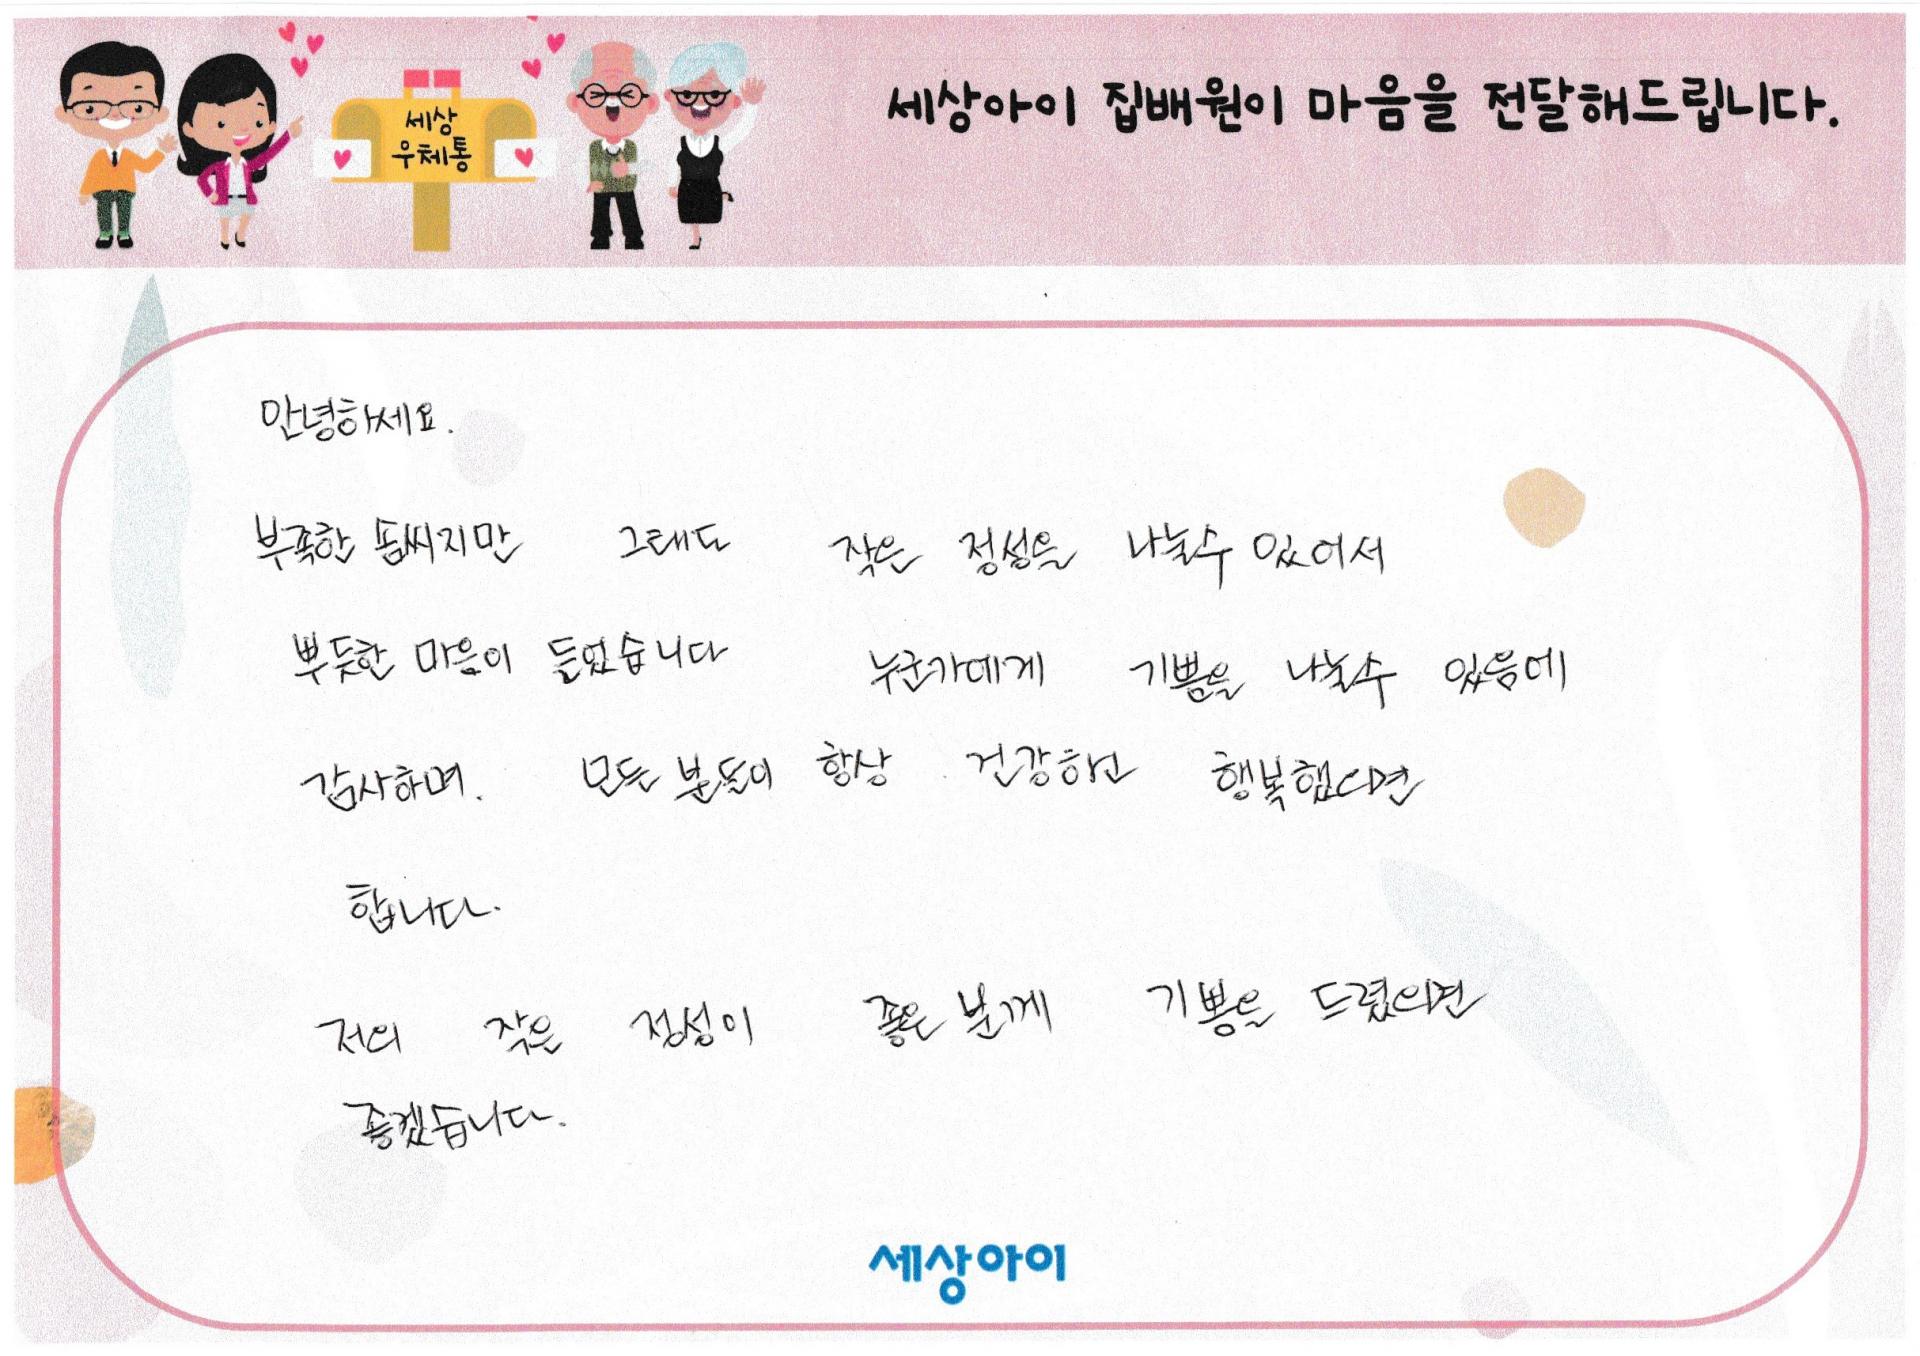 세상아이 집배원이 마음을 전달해드립니다.
세상
우체통
안녕하세요.
부족한 솜씨지만 그래도 작은 정성을 나눌수 있어서
뿌듯한 마음이 들었습니다 누군가에게 기쁨을 나눌수 있음에
감사하며. 모든 분들이 항상 건강하고 행복했으면
합니다.
저의 작은 정성이 좋은 분께 기쁨을 드렸으면
좋겠습니다.
세상아이